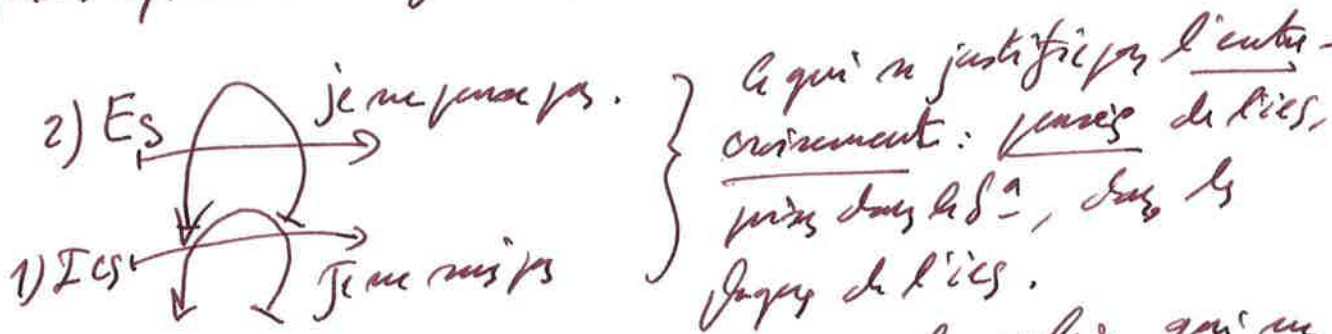 2) Es je ne pense pas.
1) Ics Je ne suis pas
Ce qui se justifie par l'entre-
croisement : pensées de l'ics,
prises dans le Sª, dans les
de l'ics.
qui ne